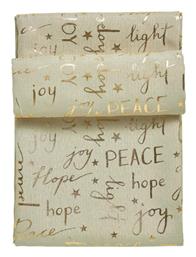 glory
light
JOY
joy
PEACE
light
joy
PEACE
light
hope
hope
joy
Peace